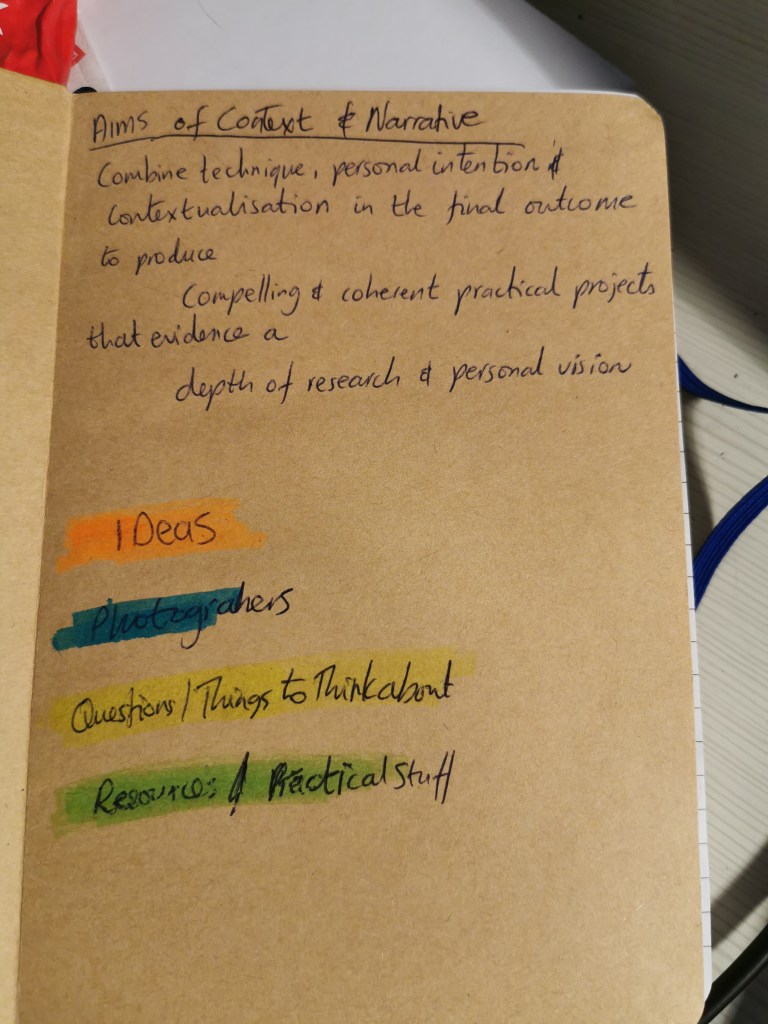 Aims of Context & Narrative
Combine technique, personal intention &
Contextualisation in the final outcome
to produce
Compelling & coherent practical projects
that evidence a
depth of research & personal vision
IDeas
Photograhers
Questions/Things to Think about
Resources & Practical Stuff